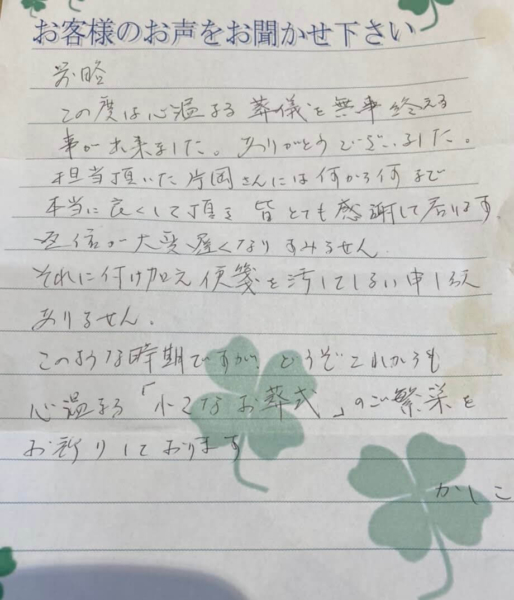 お客様のお声をお聞かせ下さい
前略
この度は心温まる葬儀を無事終える
事が出来ました。ありがとうございました。
担当頂いた片岡さんには何から何まで
本当に良くして頂き皆とても感謝して居ります
返信が大変遅くなりすみません
それに付け加え便箋を汚してしまい申し訳
ありません。
このような時期ですが、どうぞこれからも
心温まる「小さなお葬式」のご繁栄を
お祈りしております
かしこ